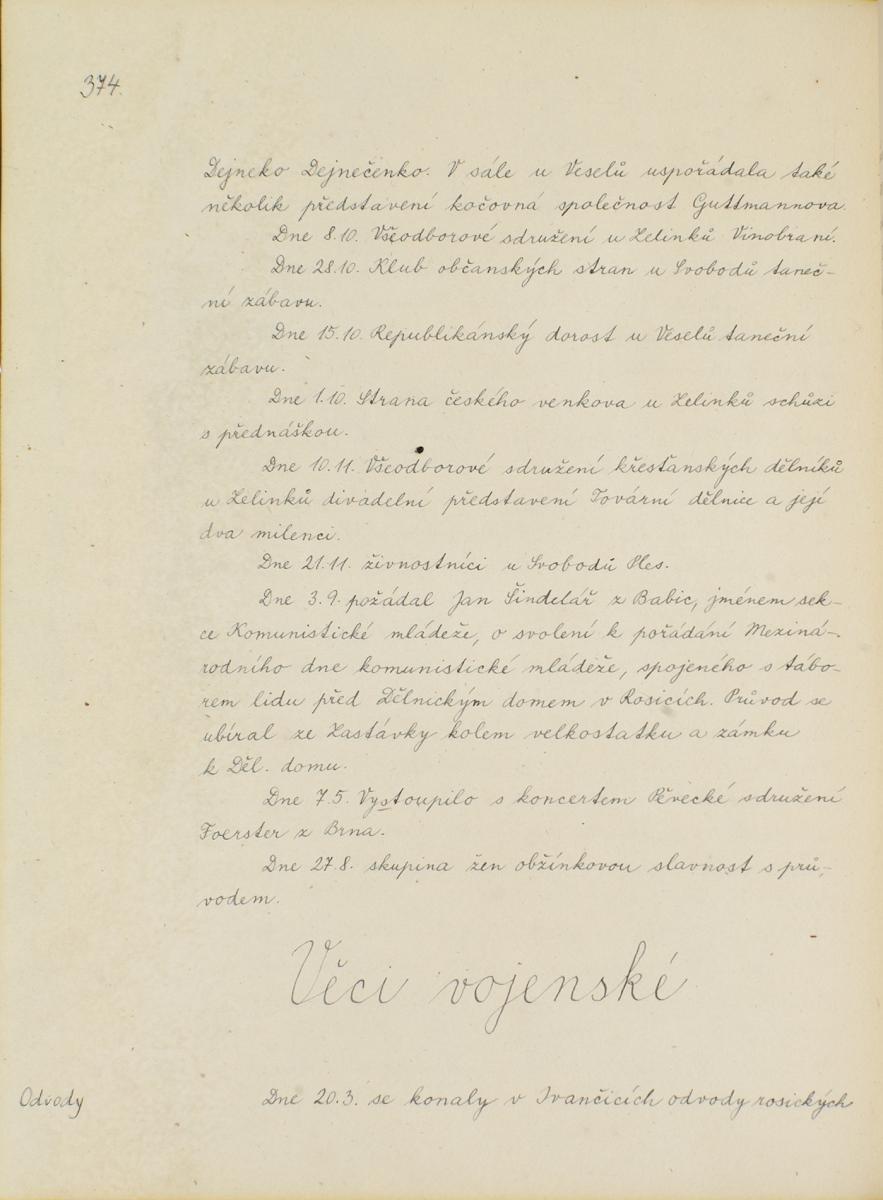 374.
Dejneko Dejnečenko. V sále u Veselů uspořádala také
několik představení kočovná společnost Guttmannova.
Dne 8.10. Všeodborové sdružení u Zelinků Vinobraní.
Dne 28.10. Klub občanských stran u Svobodů taneč-
ní zábavu.
Dne 15.10. Republikánský dorost u Veselů taneční
zábavu.
Dne 1.10. Strana českého venkova u Zelinků schůzi
s přednáškou.
Dne 10.11. Všeodborové sdružení křesťanských dělníků
u Zelinků divadelní představení Tovární dělnice a její
dva milenci.
Dne 21.11. živnostníci u Svobodů Ples.
Dne 3.9. požádal Jan Šindelář z Babic, jménem sek-
ce Komunistické mládeže, o svolení k pořádání Meziná-
rodního dne komunistické mládeže, spojeného s tábo-
rem lidu před Dělnickým domem v Rosicích. Průvod se
ubíral ze Zastávky kolem velkostatku a zámku
k Děl. domu.
Dne 7.5. Vystoupilo s koncertem Pěvecké sdružení
Foerster z Brna.
Dne 27.8. skupina žen obžínkovou slavnost s prů-
vodem.
Věci vojenské
Odvody
Dne 20.3. se konaly v Ivančicích odvody rosických